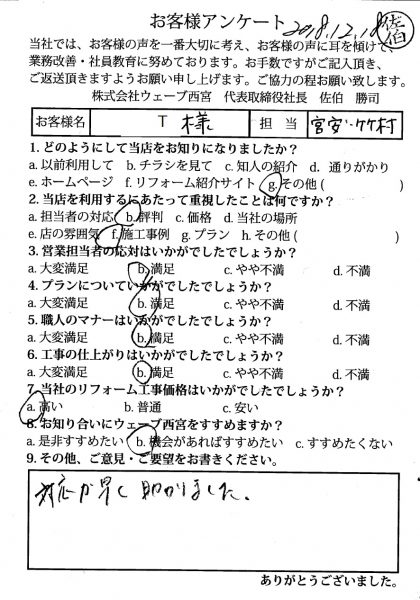 お客様アンケート 2018.12.18 佐伯
当社では、お客様の声を一番大切に考え、お客様の声に耳を傾けて
業務改善・社員教育に努めております。お手数ですがご記入頂き、
ご返送頂きますようお願い申し上げます。ご協力の程お願い致します。
株式会社ウェーブ西宮 代表取締役社長 佐伯 勝司
お客様名 T 様 担当 宮安・竹村
1. どのようにして当店をお知りになりましたか?
a. 以前利用して b. チラシを見て c. 知人の紹介 d. 通りがかり
e. ホームページ f. リフォーム紹介サイト g. その他 ( )
2. 当店を利用するにあたって重視したことは何ですか?
a. 担当者の対応 b. 評判 c. 価格 d. 当社の場所
e. 店の雰囲気 f. 施工事例 g. プラン h. その他 ( )
3. 営業担当者の応対はいかがでしたでしょうか?
a. 大変満足 b. 満足 c. やや不満 d. 不満
4. プランについていかがでしたでしょうか?
a. 大変満足 b. 満足 c. やや不満 d. 不満
5. 職人のマナーはいかがでしたでしょうか?
a. 大変満足 b. 満足 c. やや不満 d. 不満
6. 工事の仕上がりはいかがでしたでしょうか?
a. 大変満足 b. 満足 c. やや不満 d. 不満
7. 当社のリフォーム工事価格はいかがでしたでしょうか?
a. 高い b. 普通 c. 安い
8. お知り合いにウェーブ西宮をすすめますか?
a. 是非すすめたい b. 機会があればすすめたい c. すすめたくない
9. その他、ご意見・ご要望をお書きください。
対応が早く助かりました。
ありがとうございました。